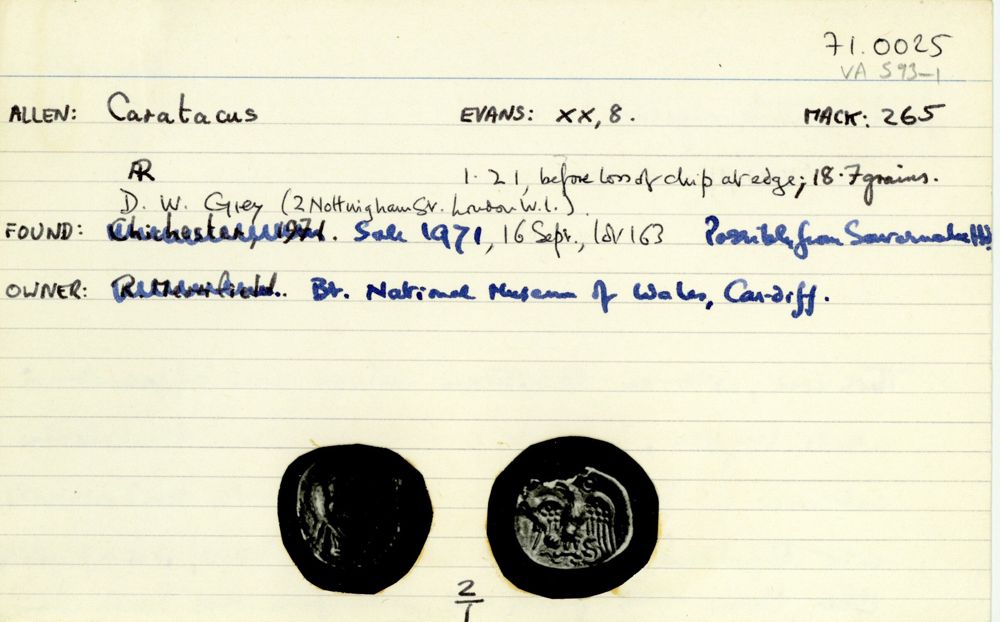 71.0025
VA 593-1
ALLEN: Caratacus EVANS: XX, 8. MACK: 265
AR 1.21, before loss of chip at edge; 18.7 grains.
D. W. Grey (2 Nottingham St. London W.1.)
FOUND: Chichester, 1971. Sale 1971, 16 Sept., lot 163 Possibly from Savernake
OWNER: R. Merrifield. Bt. National Museum of Wales, Cardiff.
2
1